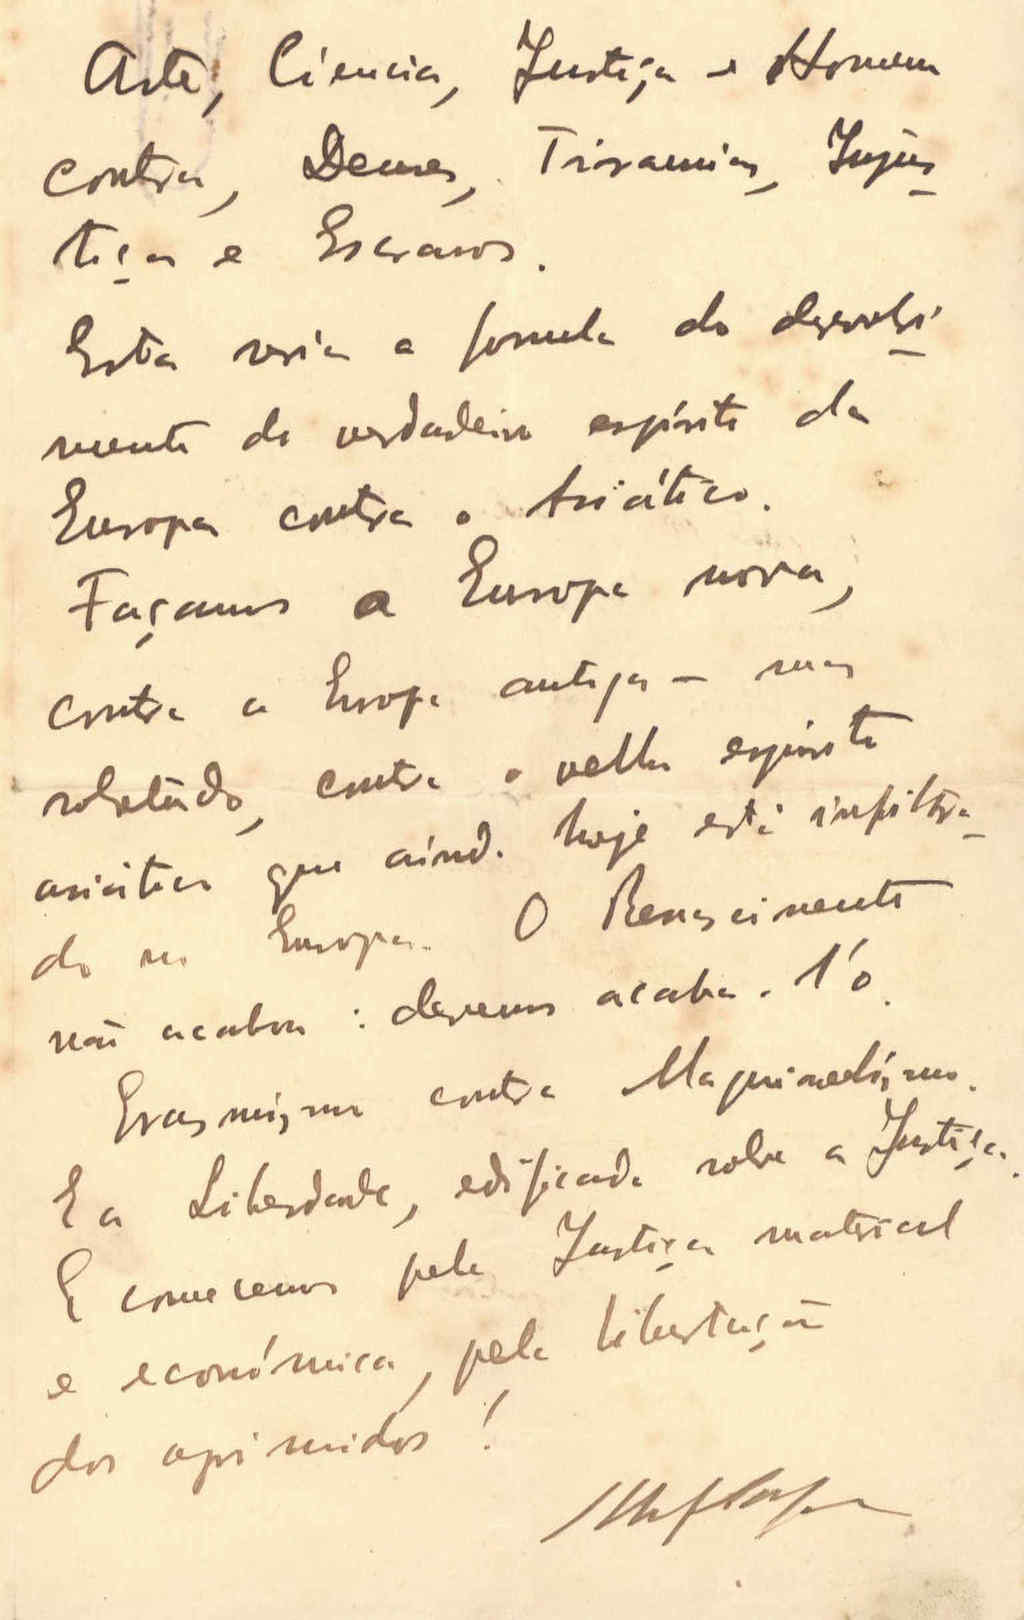 Arte, Ciencia, Justiça e Homem
contra, Deuses, Tirania, Injus-
tiça e Escravos.
Esta seria a formula do desenvolvi-
mento do verdadeiro espírito da
Europa contra o Asiático.
Façamos a Europa nova,
contra a Europa antiga – mas
sobretudo, contra o velho espirito
asiático que ainda hoje está infiltra-
do na Europa. O Renascimento
não acabou: devemos acaba-l'o.
Erasmismo contra Maquiavelismo.
E a Liberdade, edificada sobre a Justiça.
E comecemos pela Justiça material
e económica, pela libertação
dos oprimidos!